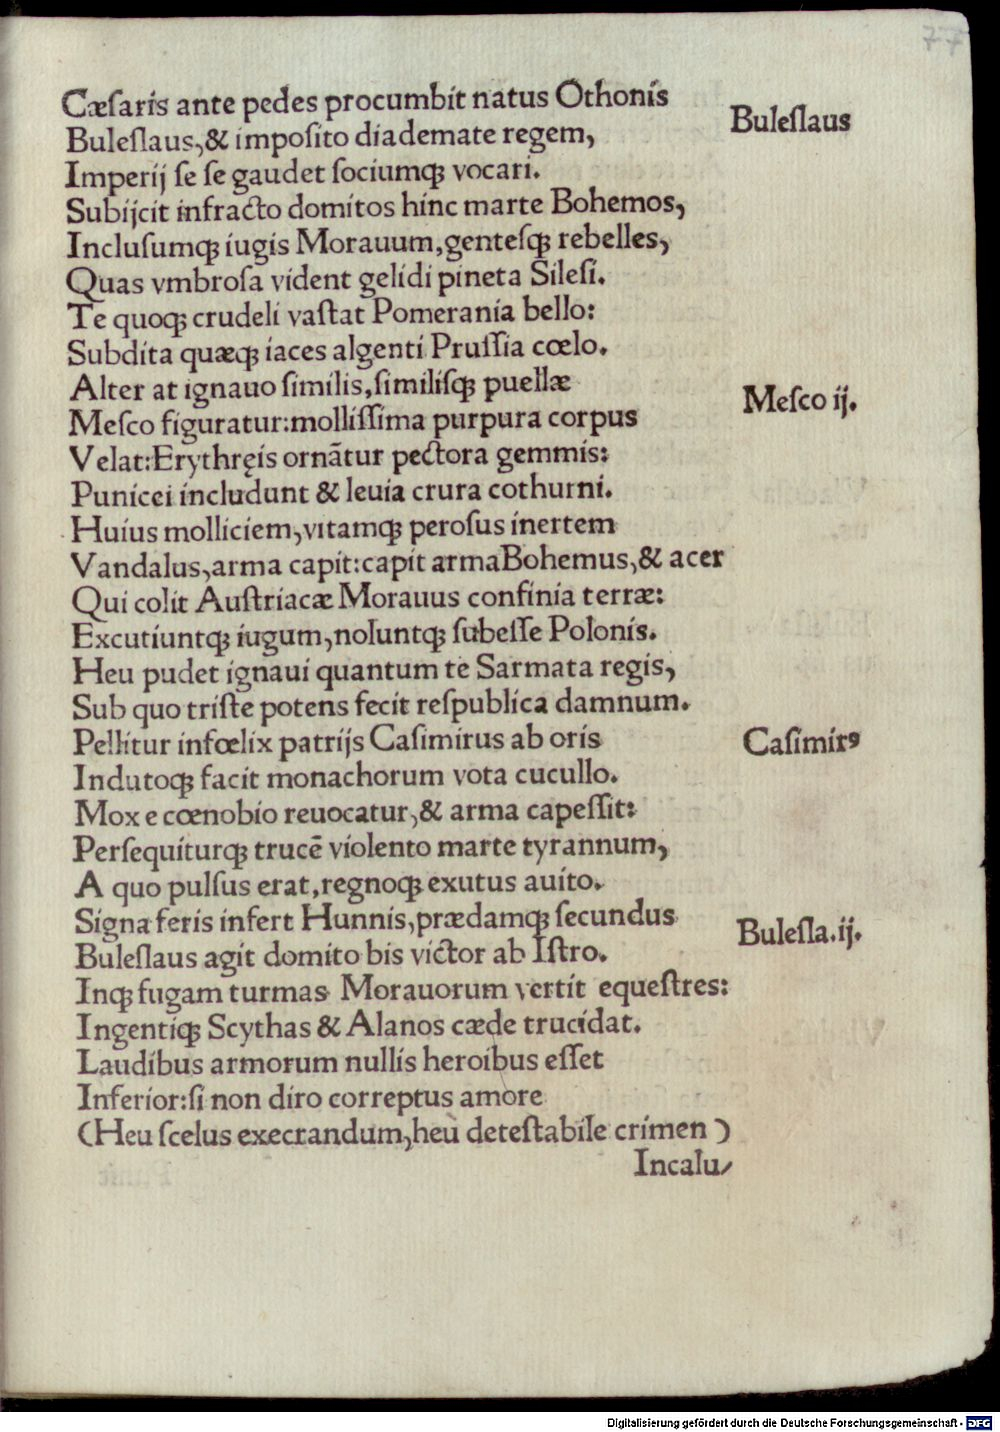 77
Cæſaris ante pedes procumbit natus Othonis
Buleſlaus
Buleſlaus,& impoſito diademate regem,
Imperij ſe ſe gaudet ſociumqꝫ vocari.
Subijcit infracto domitos hinc marte Bohemos,
Incluſumqꝫ iugis Morauum,genteſqꝫ rebelles,
Quas vmbroſa vident gelidi pineta Sileſi.
Te quoqꝫ crudeli vaſtat Pomerania bello:
Subdita quæqꝫ iaces algenti Pruſſia cœlo.
Alter at ignauo ſimilis,ſimiliſqꝫ puellæ
Meſco ij.
Meſco figuratur:molliſſima purpura corpus
Velat:Erythręis ornãtur pectora gemmis:
Punicei includunt & leuia crura cothurni.
Huius molliciem,vitamqꝫ peroſus inertem
Vandalus,arma capit:capit arma Bohemus,& acer
Qui colit Auſtriacæ Morauus confinia terræ:
Excutiuntqꝫ iugum,noluntqꝫ ſubeſſe Polonis.
Heu pudet ignaui quantum te Sarmata regis,
Sub quo triſte potens fecit reſpublica damnum.
Pellitur infœlix patrijs Caſimirus ab oris
Caſimirꝰ
Indutoqꝫ facit monachorum vota cucullo.
Mox e cœnobio reuocatur,& arma capeſſit:
Perſequiturqꝫ trucẽ violento marte tyrannum,
A quo pulſus erat,regnoqꝫ exutus auito.
Signa feris infert Hunnis,prædamqꝫ ſecundus
Buleſla.ij.
Buleſlaus agit domito bis victor ab Iſtro.
Inqꝫ fugam turmas Morauorum vertit equeſtres:
Ingentiqꝫ Scythas & Alanos cæde trucidat.
Laudibus armorum nullis heroibus eſſet
Inferior:ſi non diro correptus amore
(Heu ſcelus execrandum,heu deteſtabile crimen)
Incalu/
Digitalisierung gefördert durch die Deutsche Forschungsgemeinschaft - DFG